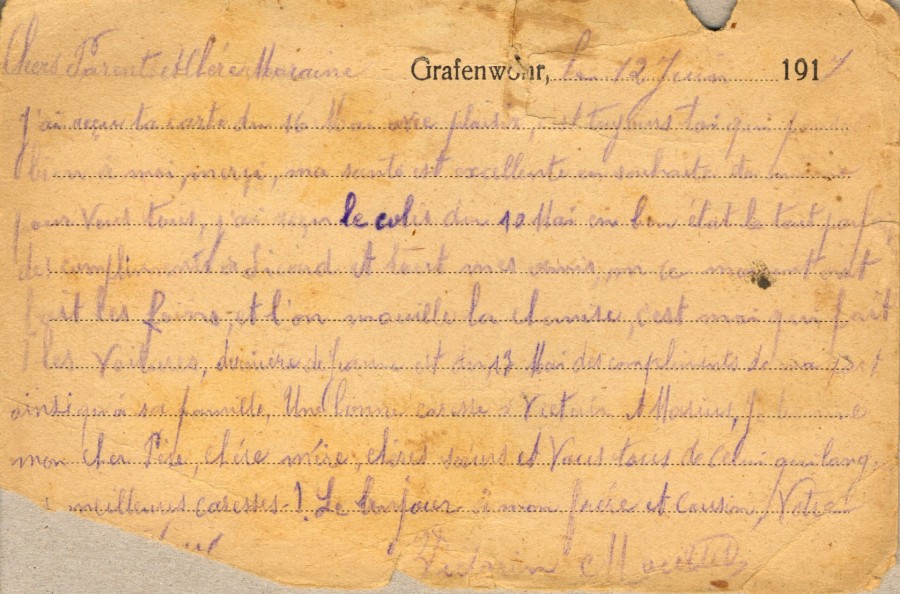 Chers Parents et Chère Maraine Grafenwöhr, le 12 Juin 1917
J'ai reçu ta carte du 16 Mai avec plaisir, c'est toujours toi qui pense
bien à moi, merçi, ma santé est excellente en souhaite de même
pour Vous tous, j'ai reçu le colis du 10 Mai en bon état le tout parf
des compliments à Sicard et tout mes amis, en ce moment ont
fait les foins, et l'on mouille la chemise, c'est moi qui fait
les Voitures, dernière de femme est du 13 Mai des compliments de ma part
ainsi qu'à sa famille, Une bonne caresse à Victorin et Marius, Je
mon Cher Père, Chère mère, chères sœurs et Vous tous de Celui qui
meilleures caresses -! Le bonjour à mon frère et cousin, Votre
Victorin